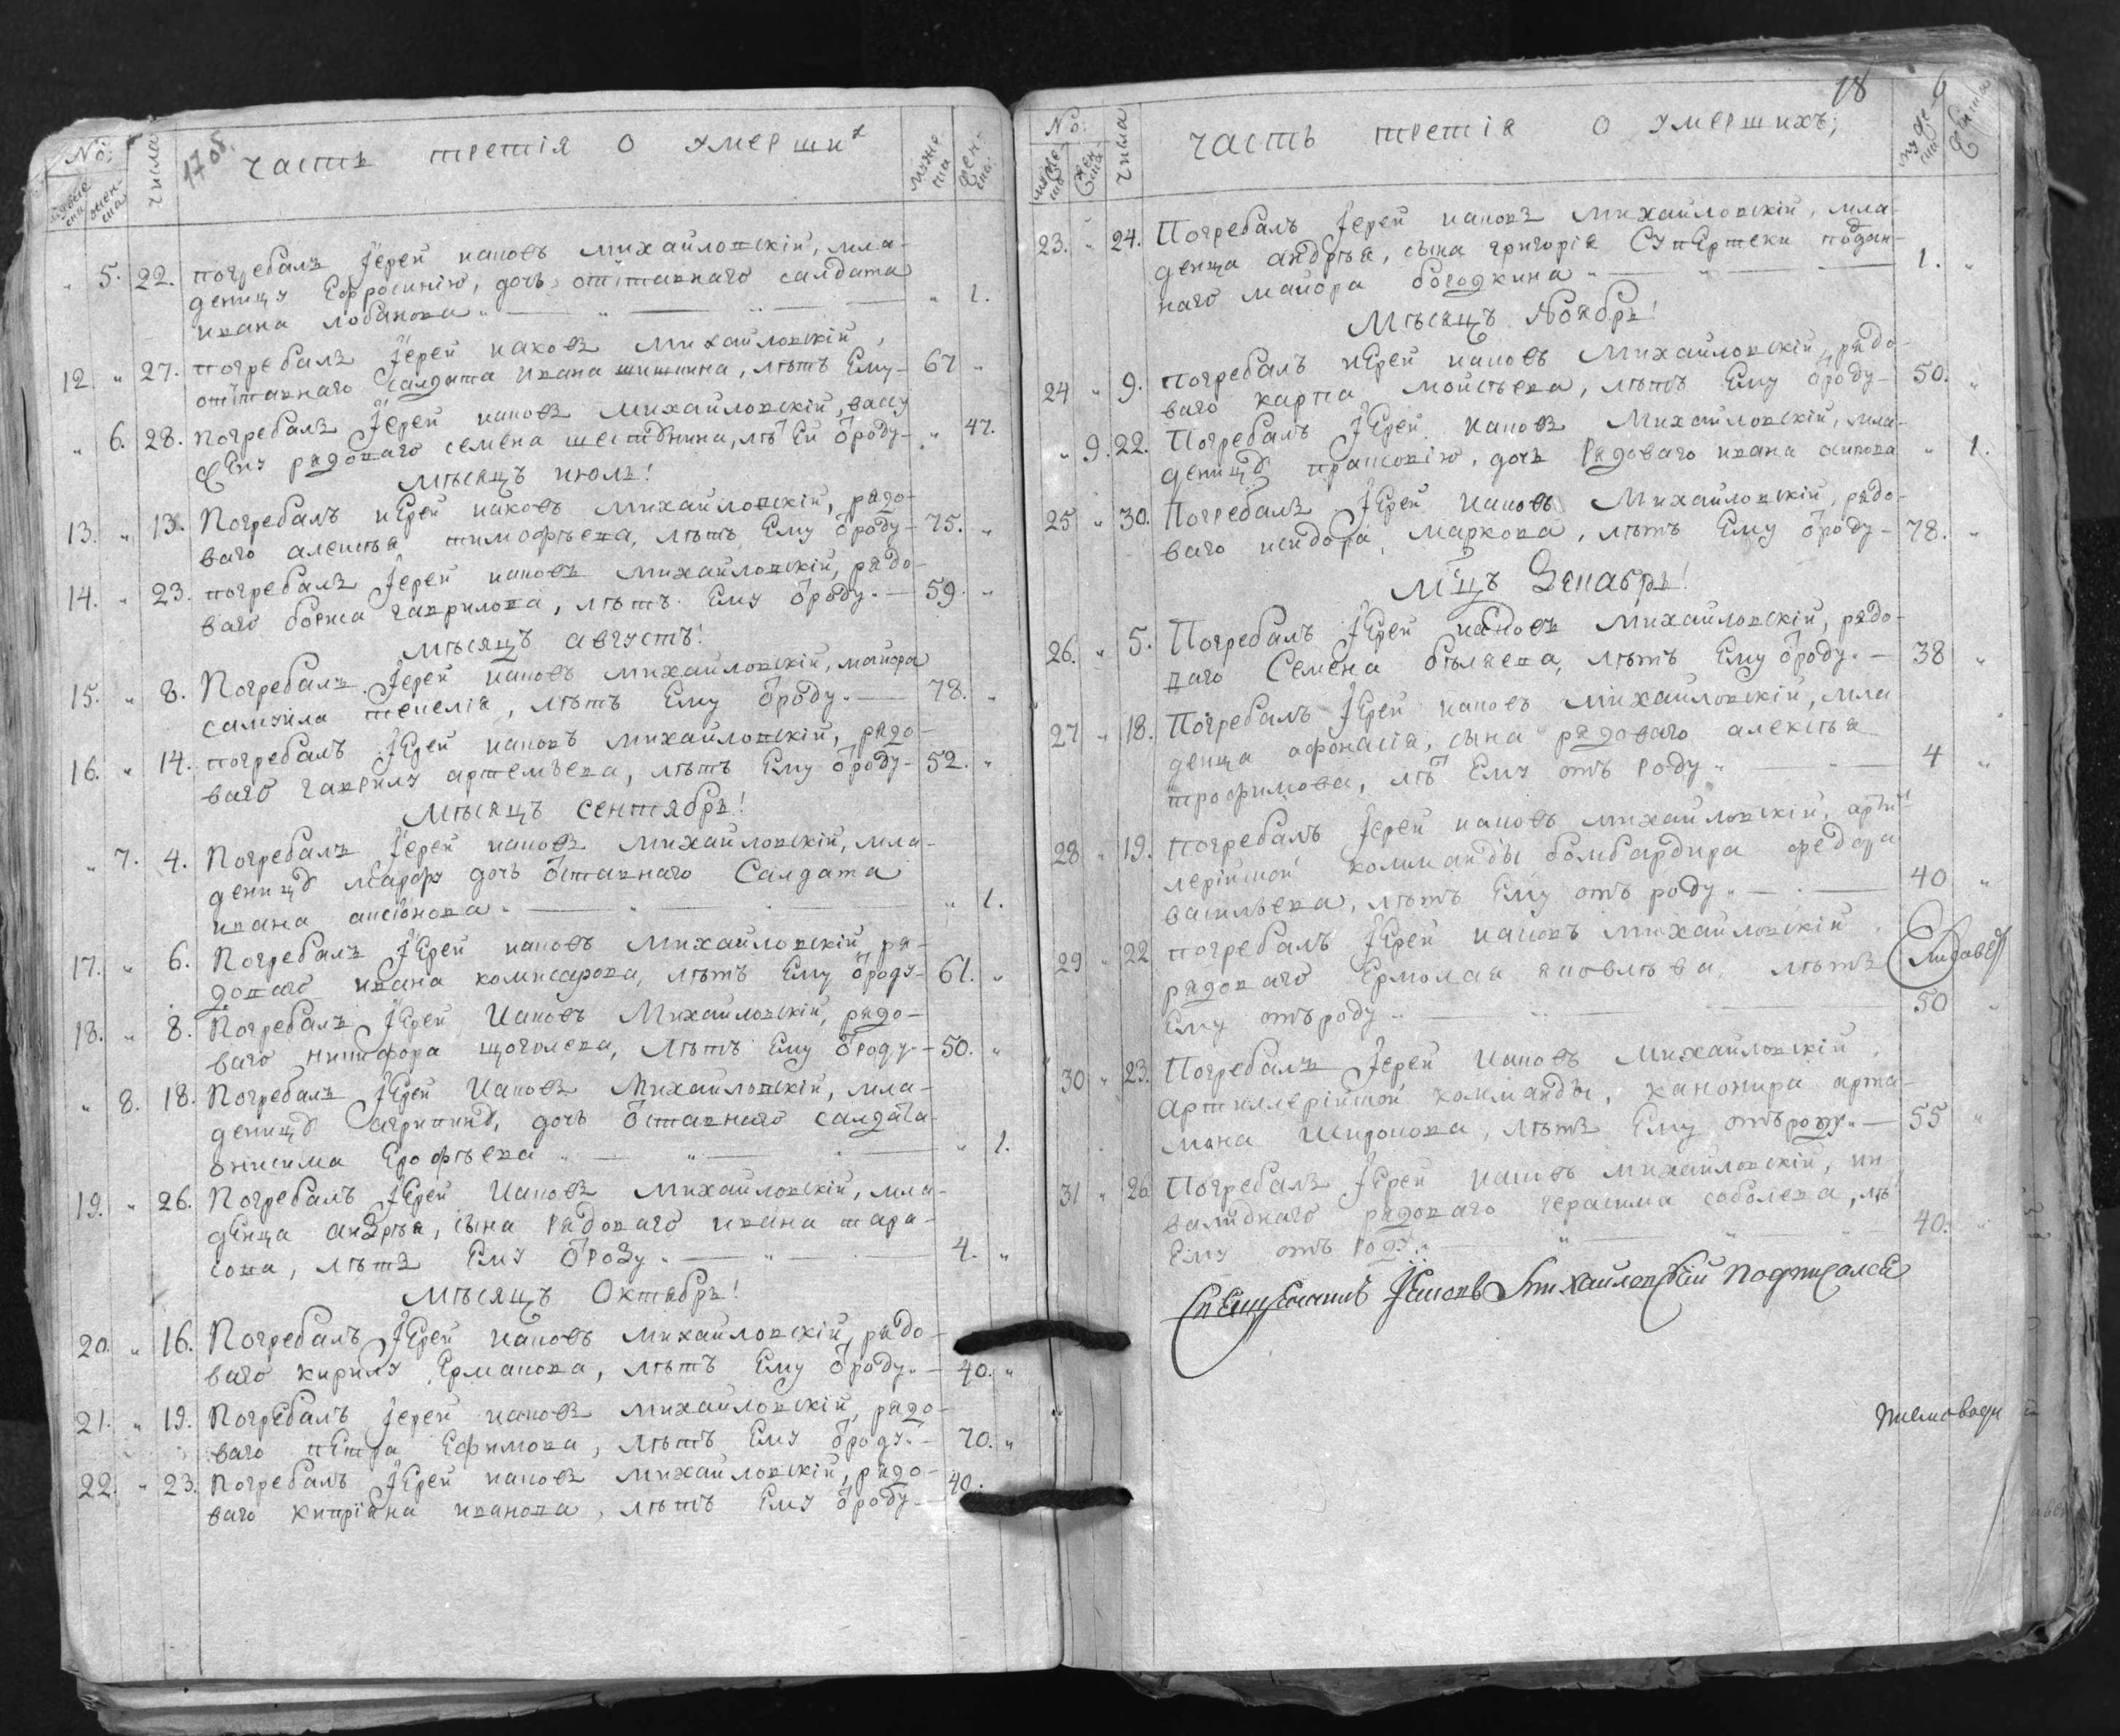 №: числа часть третія о умерши^х муже ска жен- ска
муже ска женска
5. 22. погребалъ Іерей иаковъ михайловскій, мла-
деницу Ефросинію, дочь отставнаго салдата
ивана лобанова 1.
12. 27. погребалъ Іерей иаковъ михайловскій,
отставнаго салдата ивана шишкина, лѣтъ Ему 67
6. 28. погребалъ Іерей иаковъ михайловскій, васу
рядоваго семена лѣ Ей ѿроду 47.
мѣсяцъ июль!
13. 13. Погребалъ иЕрей иаковъ михайловскій, рядо-
ваго алексѣя тимофѣева, лѣтъ Ему ѿроду 75.
14. 23. погребалъ Іерей иаковъ михайловскій, рядо-
ваго бориса гаврилова, лѣтъ Ему ѿроду 59.
мѣсяцъ августъ!
15. 8. Погребалъ Іерей иаковъ михайловскій, майора
самуила лѣтъ Ему ѿроду 78.
16. 14. погребалъ ІЕрей иаковъ михайловскій, рядо-
ваго гаврилу артемьева, лѣтъ Ему ѿроду 52.
мѣсяцъ сентябрь!
7. 4. Погребалъ Іерей иаковъ михайловскій, мла-
деницꙋ марфу дочь ѿставнаго Салдата
ивана аксіонова 1.
17. 6. Погребалъ ІЕрей иаковъ михайловскій ря-
доваго ивана комисарова, лѣтъ Ему ѿроду 61.
18. 8. Погребалъ ІЕрей Иаковъ Михайловскій, рядо-
ваго никифора щоголева, лѣтъ Ему ѿроду 50.
8. 18. Погребалъ ІЕрей Иаковъ Михайловскій, мла-
деницꙋ агрипинꙋ, дочь ѿставнаго салдата
онисима Ерофѣева 1.
19. 26. Погребалъ ІЕрей Иаковъ михайловскій, мла-
дЕнца андрѣя, сына рядоваго ивана тара-
сова, лѣтъ Ему ѿроду 4.
мѣсяцъ Октябрь!
20. 16. Погребалъ ІЕрей иаковъ михайловскій, рядо-
ваго кирилу Ермакова, лѣтъ Ему ѿроду 40.
21. 19. Погребалъ Іерей иаковъ михайловскій, рядо-
ваго пЕтра Ефимова, лѣтъ Ему ѿроду 70.
22. 23. Погребалъ ІЕрей иаковъ михайловскій, рядо-
ваго кипріана иванова, лѣтъ Ему ѿроду 40.
18 6
№: числа часть третія о умершихъ;
муже ска жен ска
23. 24. Погребалъ Іерей иаковъ михайловскій, мла-
денца андрѣя, сына григорія подан-
наго майора бородкина 1.
Мѣсяцъ Ноябрь!
24 9. погребалъ иЕрей иаковъ Михайловскій, рядо-
ваго карпа мойсѣева, лѣтъ Ему ѿроду 50.
9. 22. Погребалъ ІЕрей Иаковъ Михайловскій, мла-
деницꙋ прасковію, дочь рядоваго ивана осипова 1.
25 30. Погребалъ ІЕрей Иаковъ Михайловскій, рядо-
ваго исидора маркова, лѣтъ Ему ѿроду 78.
мц҃ъ Декабрь!
26. 5. Погребалъ ІЕрей иаковъ Михайловскій, рядо-
ваго Семена бѣляева, лѣтъ Ему ѿроду 38
27 18. Погребалъ ІЕрей иаковъ михайловскій, мла
денца афонасія, сына рядоваго алексѣя
трофимова, лѣ Ему отъ роду 4
28 19. погребалъ Іерей иаковъ михайловскій, арти
лерійской комманды бомбардира федора
васильева, лѣтъ Ему отъ роду 40
29 22 погребалъ ІЕрей иаковъ михайловскій
рядоваго Ермолая яковлѣва лѣтъ
Ему отъ роду 50
30 23. Погребалъ Іерей Иаковъ Михайловскій,
артиллерійской комманды, канонира арта-
мона Широкова, лѣтъ Ему отъ роду 55
31 26 Погребалъ ІЕрей Иаковъ михайловскій, ин
валиднаго рядоваго герасима соболева, лѣ
Ему отъ роду 40.
Священникъ Іаковъ Михайловскій подписался